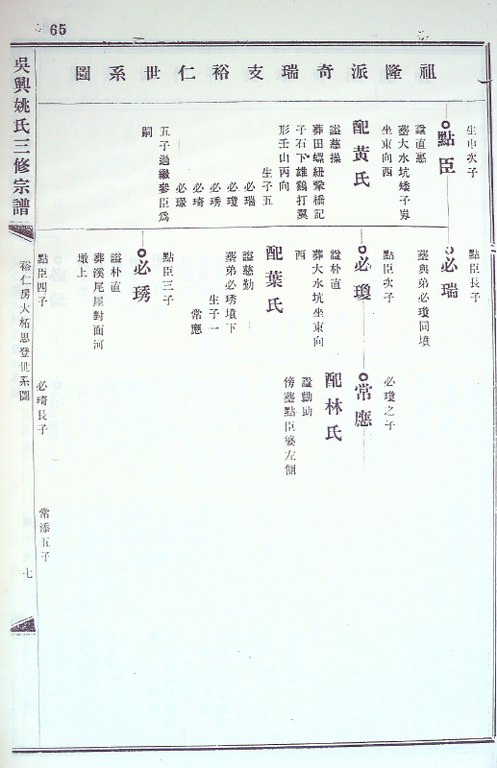 65
祖隆派奇瑞支裕仁世系圖
生申次子
點臣
諡直憲
塟大水坑矮子界
坐東向西
配黃氏
諡慈操
葬田螺紐犂橋記
子石下雄鶴打翼
形壬山丙向
生子五
必瑞
必瓊
必琇
必琦
必璟
五子過繼參臣爲
嗣
點臣長子
必瑞
塟與弟必瓊同墳
點臣次子
必瓊
諡朴直
葬大水坑坐東向
西
配葉氏
諡慈勤
塟弟必琇墳下
生子一
常應
點臣三子
必琇
諡朴直
葬溪尾屋對面河
墩上
點臣四子
必瓊之子
常應
諡勤助
配林氏
傍塟點臣婆左側
必琦長子
常添五子
吳興姚氏三修宗譜
裕仁房大柘思登世系圖
七